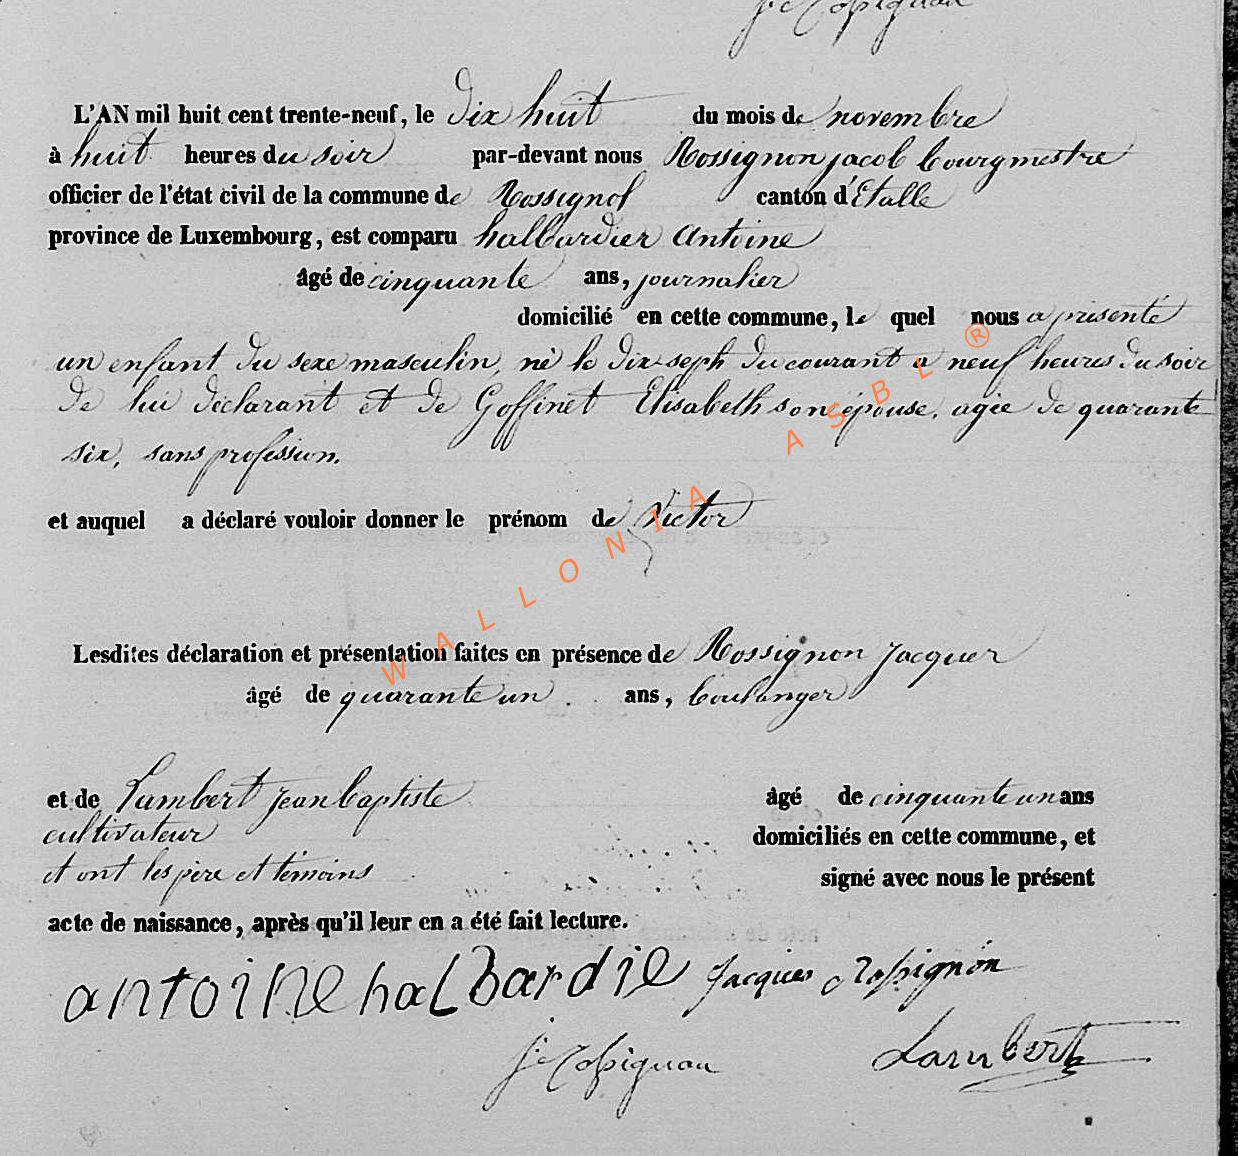 Jc Rossignon
L'AN mil huit cent trente-neuf, le dix huit du mois de novembre
à huit heures du soir par-devant nous Rossignon jacob bourgmestre
officier de l'état civil de la commune de Rossignol canton d'Etalle
province de Luxembourg, est comparu halbardier Antoine
âgé de cinquante ans, journalier
domicilié en cette commune, le quel nous a présenté
un enfant du sexe masculin, né le dix-sept du courant a neuf heures du soir
de lui déclarant et de Goffinet Elisabeth son épouse, agée de quarante
six, sans profession.
et auquel a déclaré vouloir donner le prénom de Victor
Lesdites déclaration et présentation faites en présence de Rossignon Jacques
âgé de quarante un ans, boulanger
et de Lambert Jean baptiste âgé de cinquante un ans
cultivateur domiciliés en cette commune, et
et ont les père et témoins signé avec nous le présent
acte de naissance, après qu'il leur en a été fait lecture.
antoine halbardie Jacques Rossignon
Jc Rossignon Lambert
WALLONIA ASBL ®